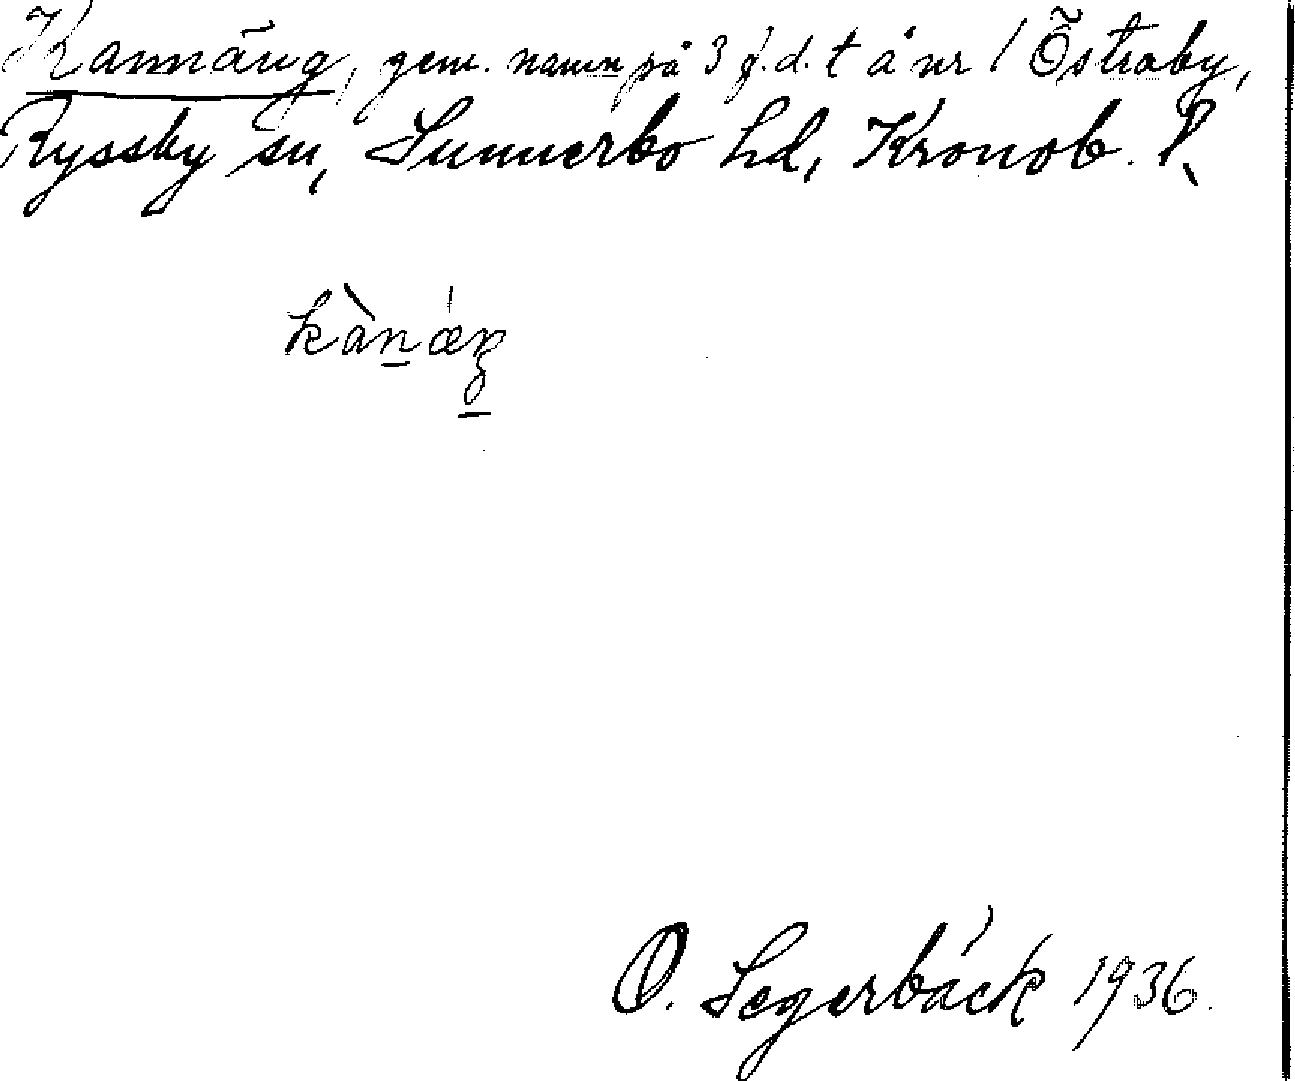 Kannäng, gem. namn på 3 f.d. t å nr 1 Östraby,
Ryssby sn, Sunnerbo hd, Kronob. l.
kànǽŋ
O. Segerbäck 1936.